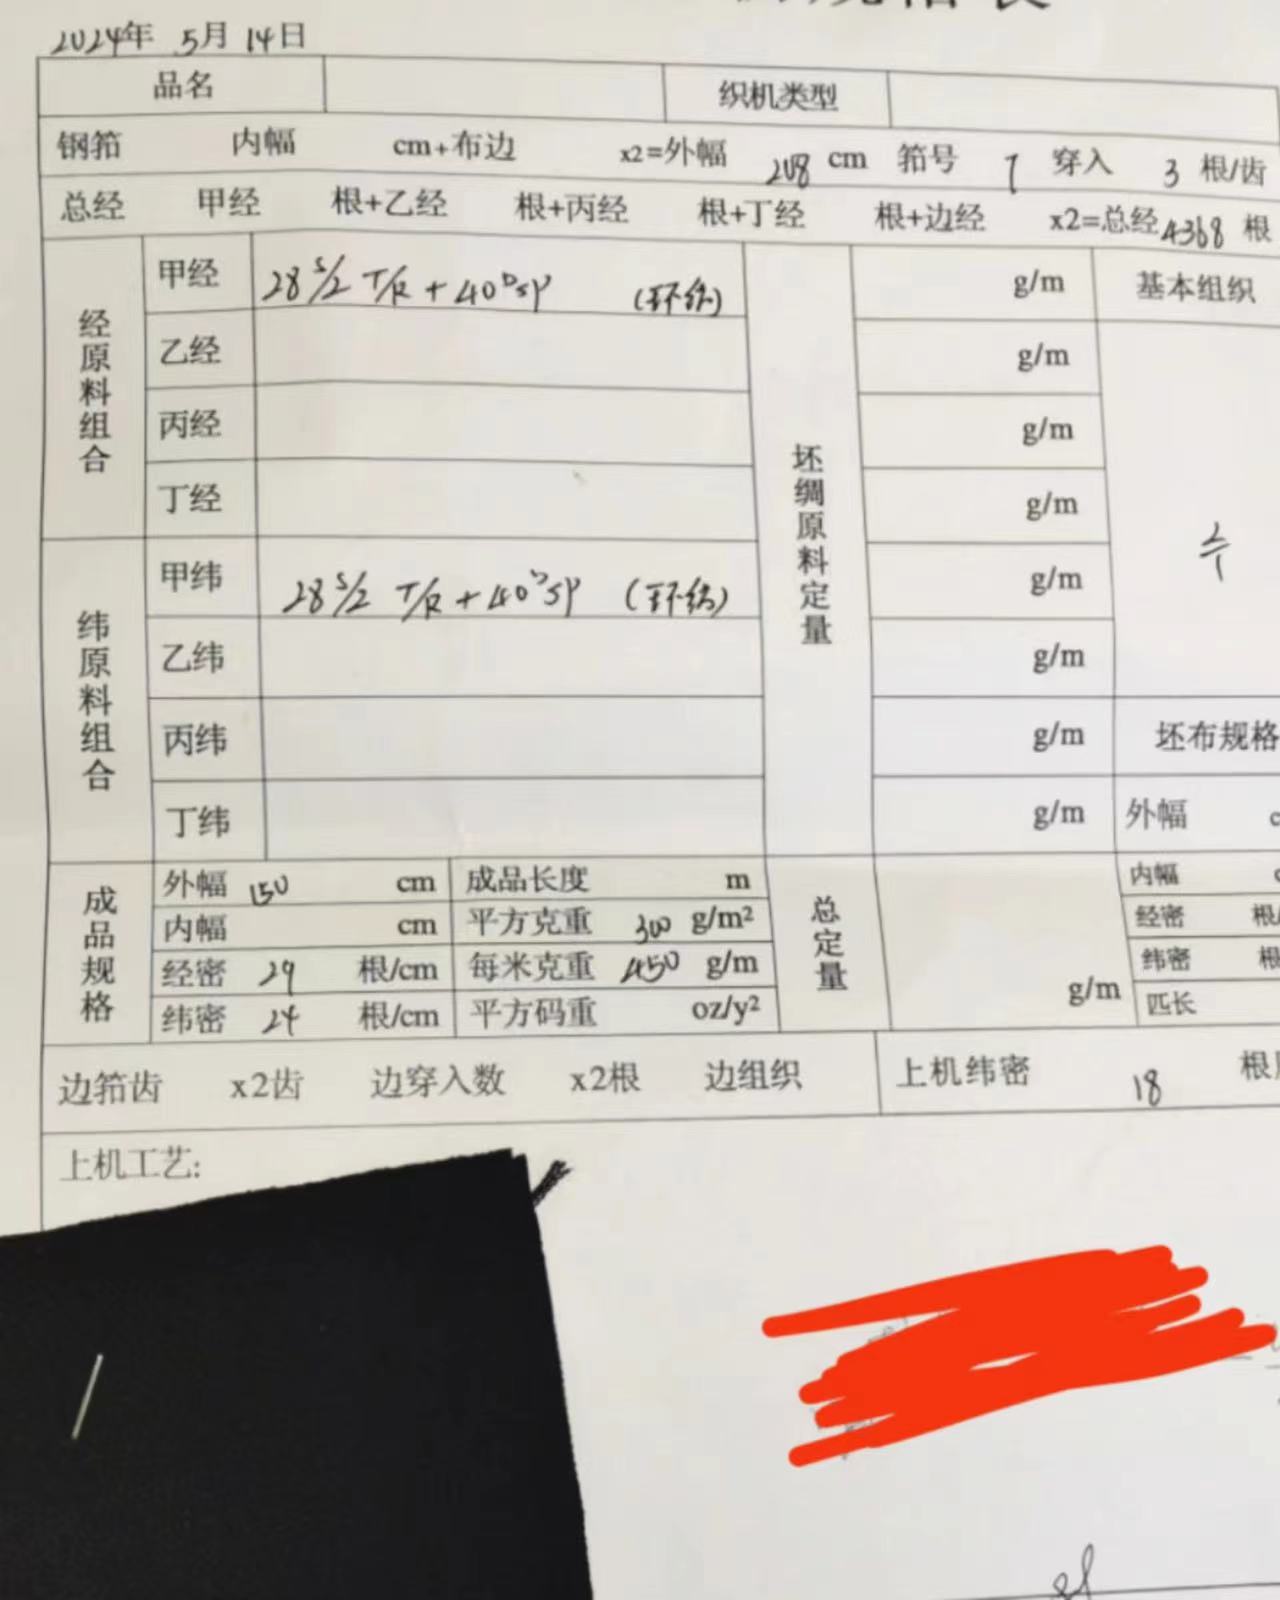 2024年 5月 14日
品名 织机类型
钢筘 内幅 cm+布边 x2=外幅 208 cm 筘号 7 穿入 3 根/齿
总经 甲经 根+乙经 根+丙经 根+丁经 根+边经 x2=总经 4368 根
经原料组合 甲经 28S/2 T/R + 40DSP (环纺) g/m 基本组织
乙经 g/m
丙经 g/m
丁经 g/m
坯绸原料定量
2/1
纬原料组合 甲纬 28S/2 T/R + 40DSP (环纺) g/m
乙纬 g/m
丙纬 g/m 坯布规格
丁纬 g/m 外幅
成品规格 外幅 150 cm 成品长度 m 总定量 g/m 内幅
内幅 cm 平方克重 300 g/m² 经密 根/
经密 29 根/cm 每米克重 450 g/m 纬密 根
纬密 24 根/cm 平方码重 oz/y² 匹长
边筘齿 x2齿 边穿入数 x2根 边组织 上机纬密 18 根
上机工艺: